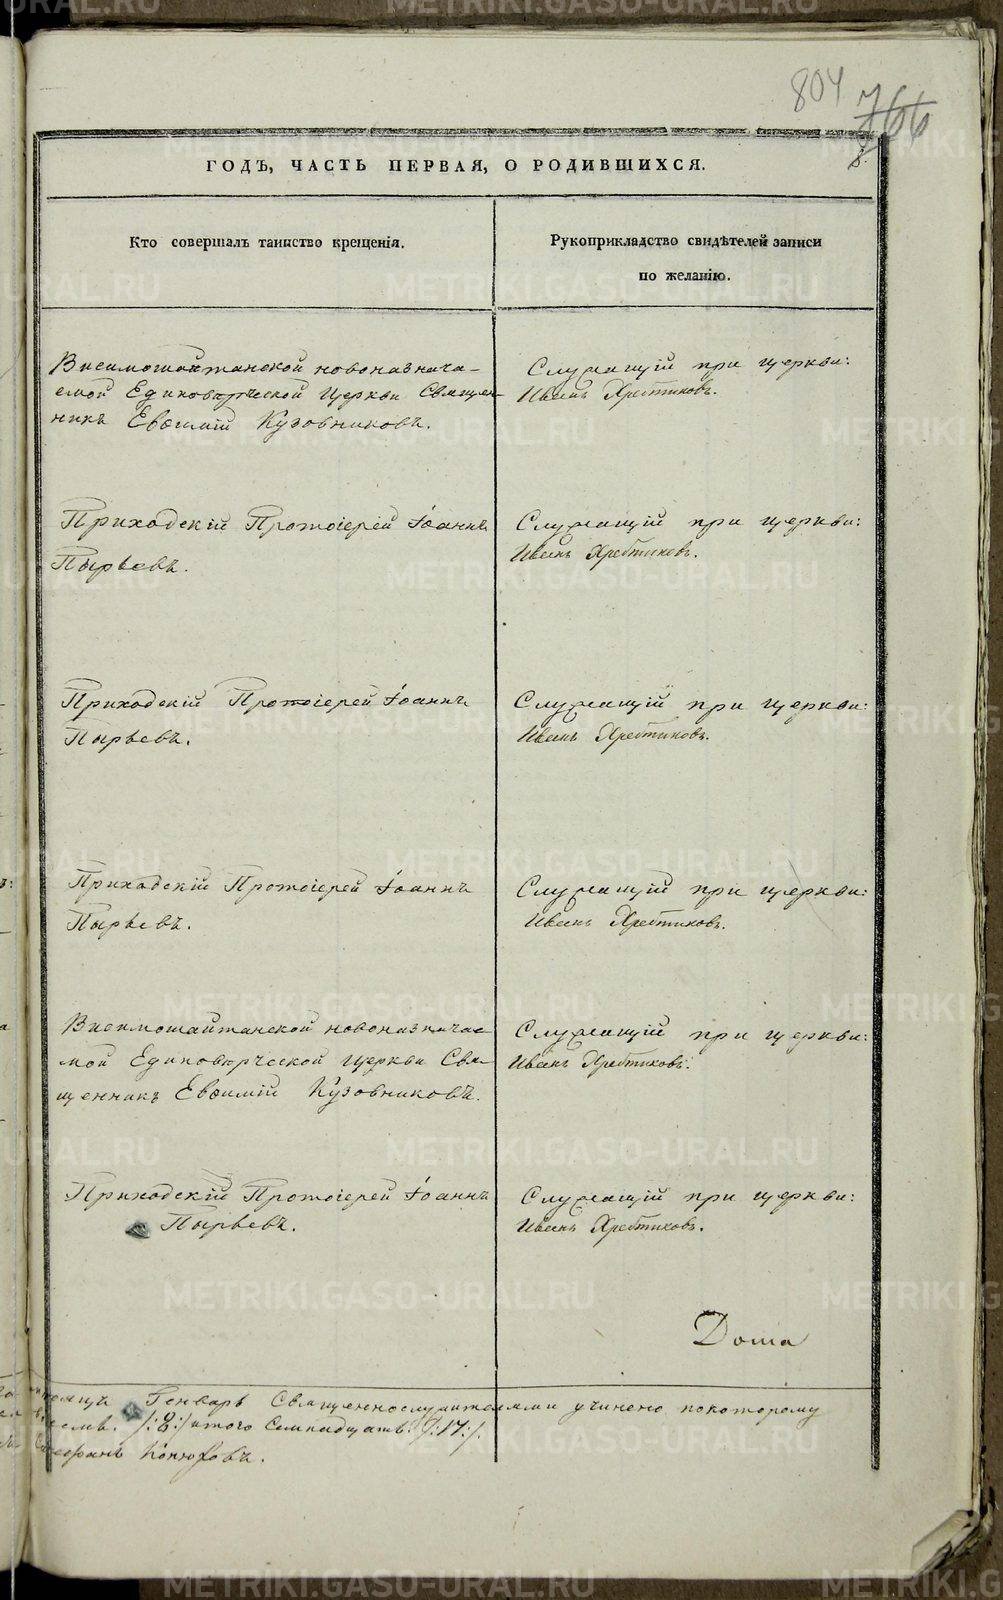 804
766
8.
ГОДЪ, ЧАСТЬ ПЕРВАЯ, О РОДИВШИХСЯ.
Кто совершалъ таинство крещенія.
Рукоприкладство свидѣтелей записи
по желанію.
Висимошайтанской новоназнача-
емой Единоверческой Церкви Священ-
никъ Евѳимій Кузовниковъ.
Служащій при церкви:
Иванъ Хребтиковъ.
Приходскій Протоіерей Іоаннъ
Пырьевъ.
Служащій при церкви:
Иванъ Хребтиковъ.
Приходскій Протоіерей Іоаннъ
Пырьевъ.
Служащій при церкви:
Иванъ Хребтиковъ.
Приходскій Протоіерей Іоаннъ
Пырьевъ.
Служащій при церкви:
Иванъ Хребтиковъ.
Висимошайтанской новоназначае-
мой Единоверческой Церкви Свя-
щенникъ Евѳимій Кузовниковъ.
Служащій при церкви:
Иванъ Хребтиковъ.
Приходскій Протоіерей Іоаннъ
Пырьевъ.
Служащій при церкви:
Иванъ Хребтиковъ.
Дома
Генварь Священнослужителями учинено покоторому
/:8:/ итого Семнадцать /:17:/.
Конюховъ.
METRIKI.GASO-URAL.RU